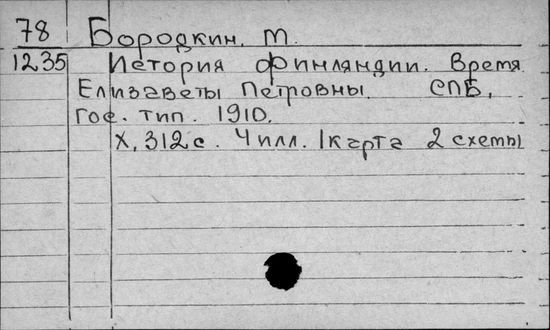 78 Бородкин, М.
1235 История Финляндии. Время
Елизаветы Петровны. СПБ,
Гос. тип. 1910.
X, 312 с. 4 илл. 1 карта 2 схемы